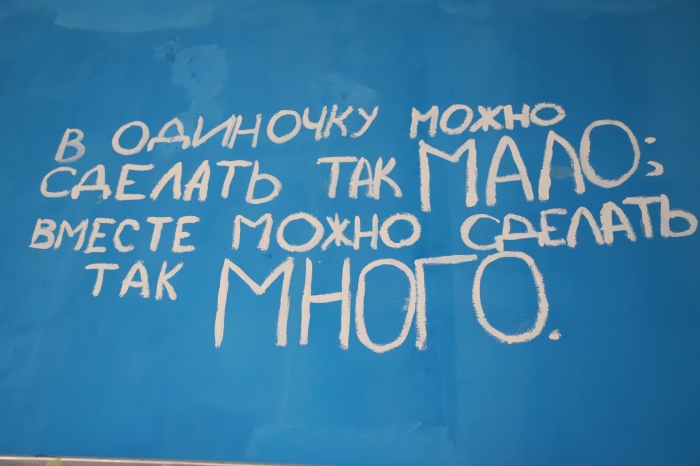 В ОДИНОЧКУ МОЖНО
СДЕЛАТЬ ТАК МАЛО;
ВМЕСТЕ МОЖНО СДЕЛАТЬ
ТАК МНОГО.